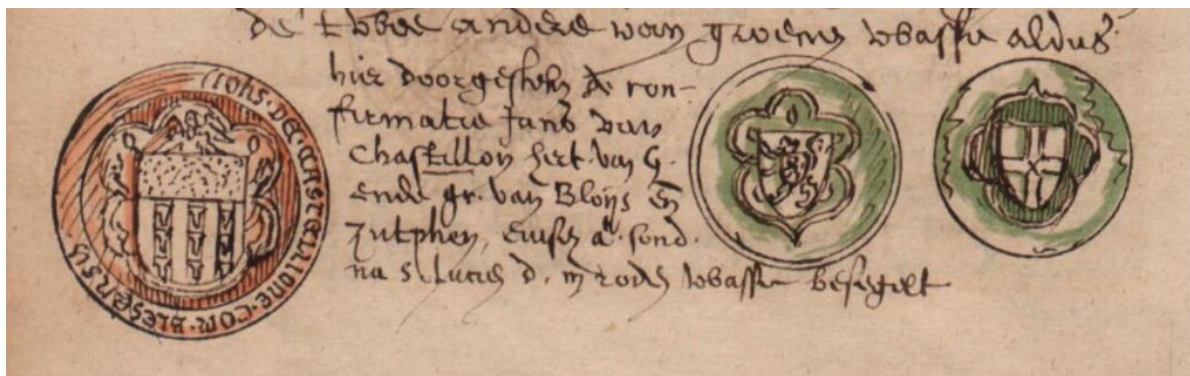 de twee andere van groenen wasse aldus
hier doorgesteken de con-
firmatie Jans van
Chastillon hert. van G.
ende gr. van Bloijs en
Zutphen, sond.
na S. Lucien d. in roden wasse besegelt
IOHS. DE. CASTELLIONE. COM. BLESENSIS